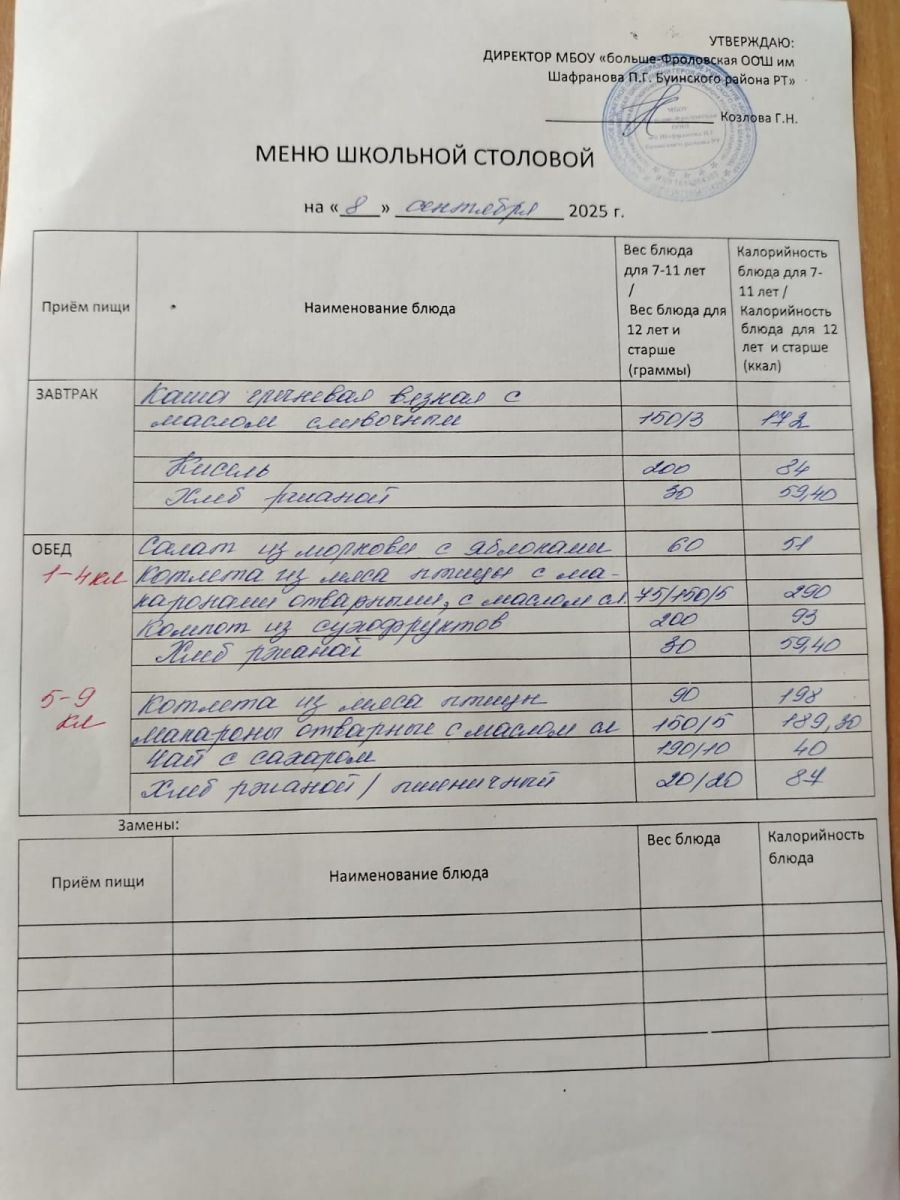 УТВЕРЖДАЮ:
ДИРЕКТОР МБОУ «больше-Фроловская ООШ им
Шафранова П.Г. Буинского района РТ»
Козлова Г.Н.
МЕНЮ ШКОЛЬНОЙ СТОЛОВОЙ
на «8» сентября 2025 г.
Приём пищи
Наименование блюда
Вес блюда
для 7-11 лет
/
Вес блюда для
12 лет и
старше
(граммы)
Калорийность
блюда для 7-
11 лет /
Калорийность
блюда для 12
лет и старше
(ккал)
ЗАВТРАК
Каша гречневая вязкая с
маслом сливочным 150/3 172
Кисель 200 84
Хлеб ржаной 30 59,40
ОБЕД
1-4 кл
Салат из моркови с яблоками 60 51
Котлета из мяса птицы с ма-
каронами отварными, с маслом сл. 75/150/5 290
Компот из сухофруктов 200 93
Хлеб ржаной 30 59,40
5-9
кл
Котлета из мяса птицы 90 198
Макароны отварные с маслом сл 150/5 189,30
Чай с сахаром 190/10 40
Хлеб ржаной / пшеничный 20/20 87
Замены:
Приём пищи
Наименование блюда
Вес блюда
Калорийность
блюда